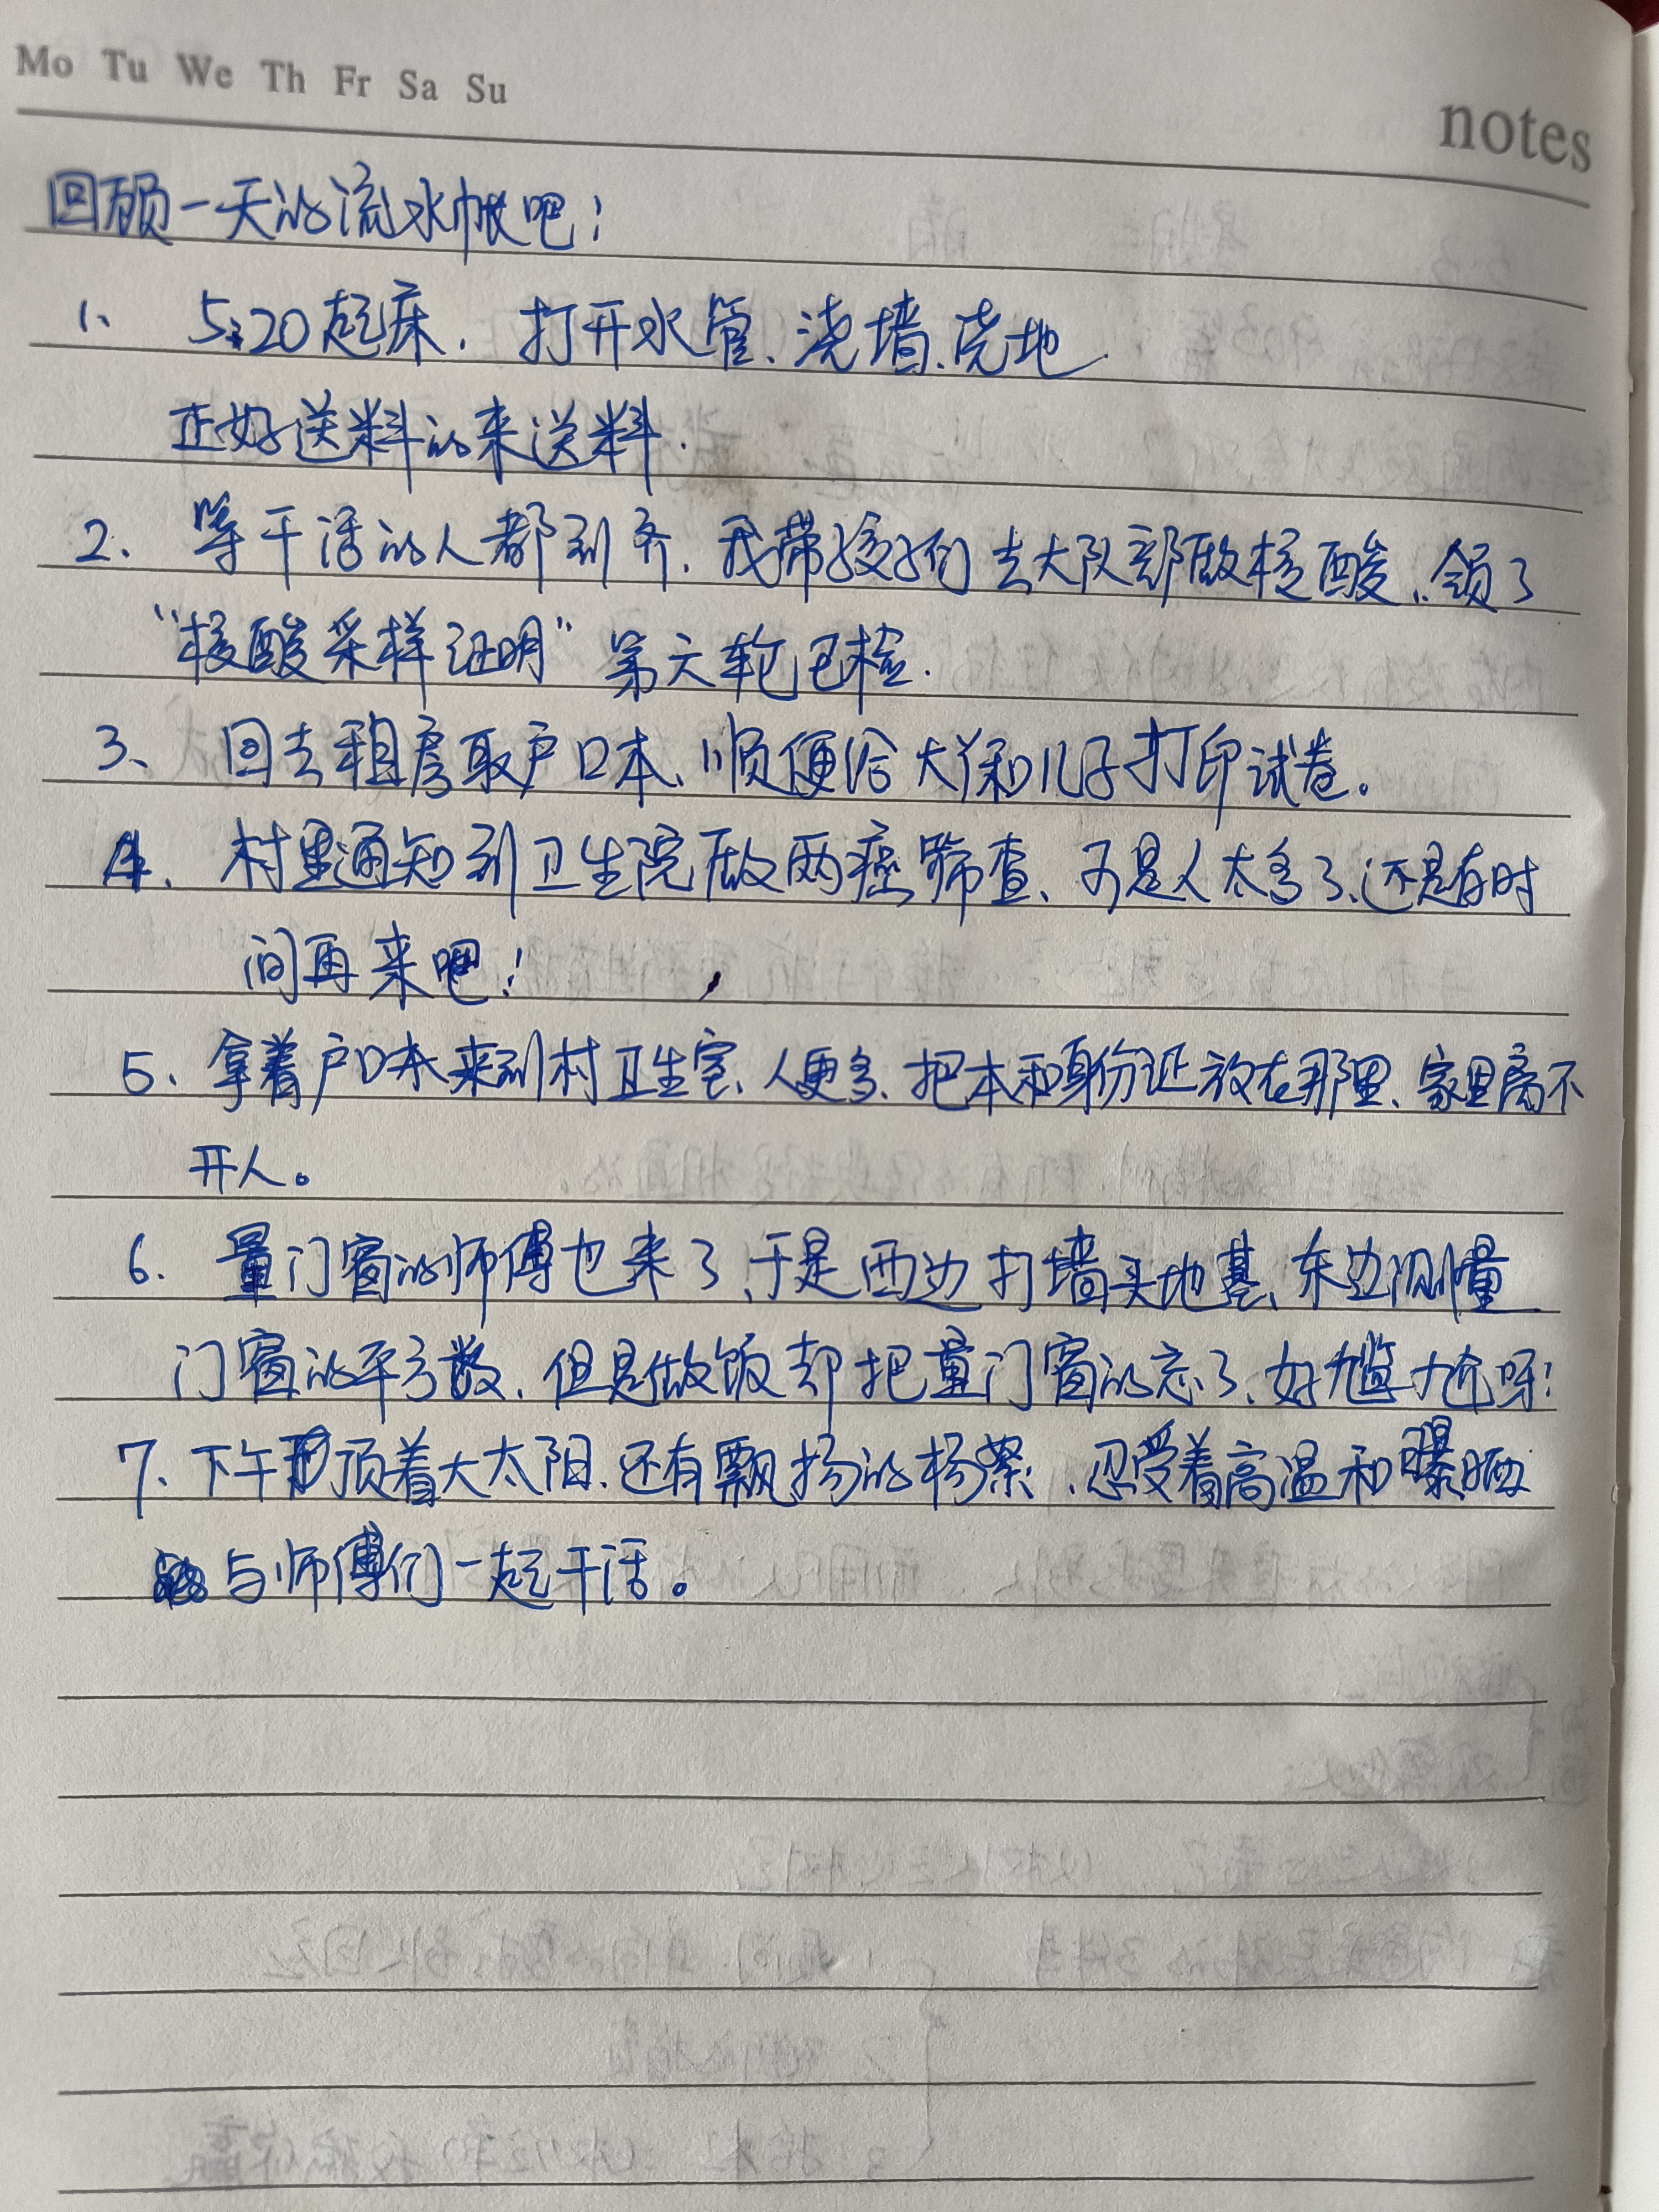 Mo Tu We Th Fr Sa Su
notes
回顾一天的流水帐吧！
1、 5:20起床，打开水管、浇墙、浇地
正好送料的来送料．
2、 等干活的人都到齐，我带孩子们去大队部做核酸，领了
“核酸采样证明”第六轮已检．
3、 回去租房取户口本、顺便给大侄和儿子打印试卷。
4、 村里通知到卫生院做两癌筛查、可是人太多了、还是有时
间再来吧！
5、拿着户口本来到村卫生室、人更多、把本和身份证放在那里、家里离不
开人。
6、 量门窗的师傅也来了、于是西边打墙头地基、东边测量
门窗的平方数，但是做饭却把量门窗的忘了、好尴尬呀！
7、下午顶着大太阳、还有飘扬的杨絮、忍受着高温和曝晒
与师傅们一起干活。